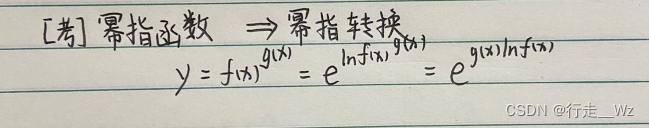 [考] 幂指函数 ⇒ 幂指转换
y = f(x)^{g(x)} = e^{ln f(x)^{g(x)}} = e^{g(x) ln f(x)}
CSDN @行走__Wz